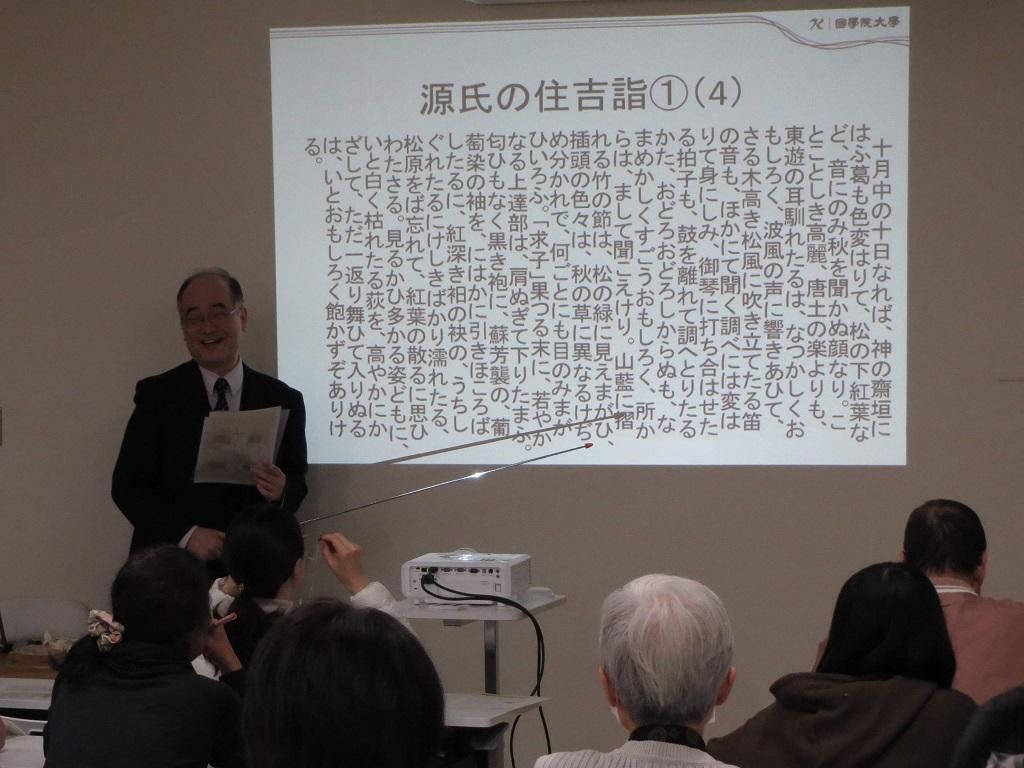 國學院大學
源氏の住吉詣①(4)
十月中の十日なれば、神の齋垣に
はふ葛も色変はりて、松の下紅葉な
ど、音にのみ秋を聞かぬ顔なり。こ
とことしき高麗、唐土の楽よりも、
東遊の耳馴れたるは、なつかしくお
もしろく、波風の声に響きあひて、
さる木高き松風に吹き立てたる笛
の音も、ほかにて聞く調べには変は
りて身にしみ、御琴に打ち合はせた
る拍子も、鼓を離れて調へとりたる
かた、おどろおどろしからぬも、な
まめかしくすごうおもしろく、所か
らは、まして聞こえけり。山藍に摺
れる竹の節は、松の緑に見えまがひ、
插頭の色々は、秋の草に異なるけぢ
め分かれで、何ごとにも目のみまが
ひいろふ。「求子」果つる末に、若やか
なる上達部は、肩ぬぎて下りたまふ。
匂ひもなく黒き袍に、蘇芳襲の、葡
萄染の袖を、にはかに引きほころば
したるに、紅深き衵の袂の、うちし
ぐれたるにけしきばかり濡れたる、
松原をば忘れて、紅葉の散るに思ひ
わたさる。見るかひ多かる姿どもに、
いと白く枯れたる荻を、高やかにか
ざして、ただ一返り舞ひて入りぬる
は、いとおもしろく飽かずぞありけ
る。